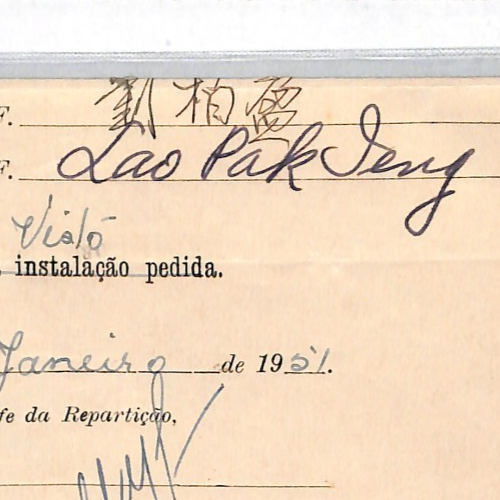 F. 劉柏盈
F. Lao Pak Ieng
Visto
instalação pedida.
Janeiro de 1951.
fe da Repartição,